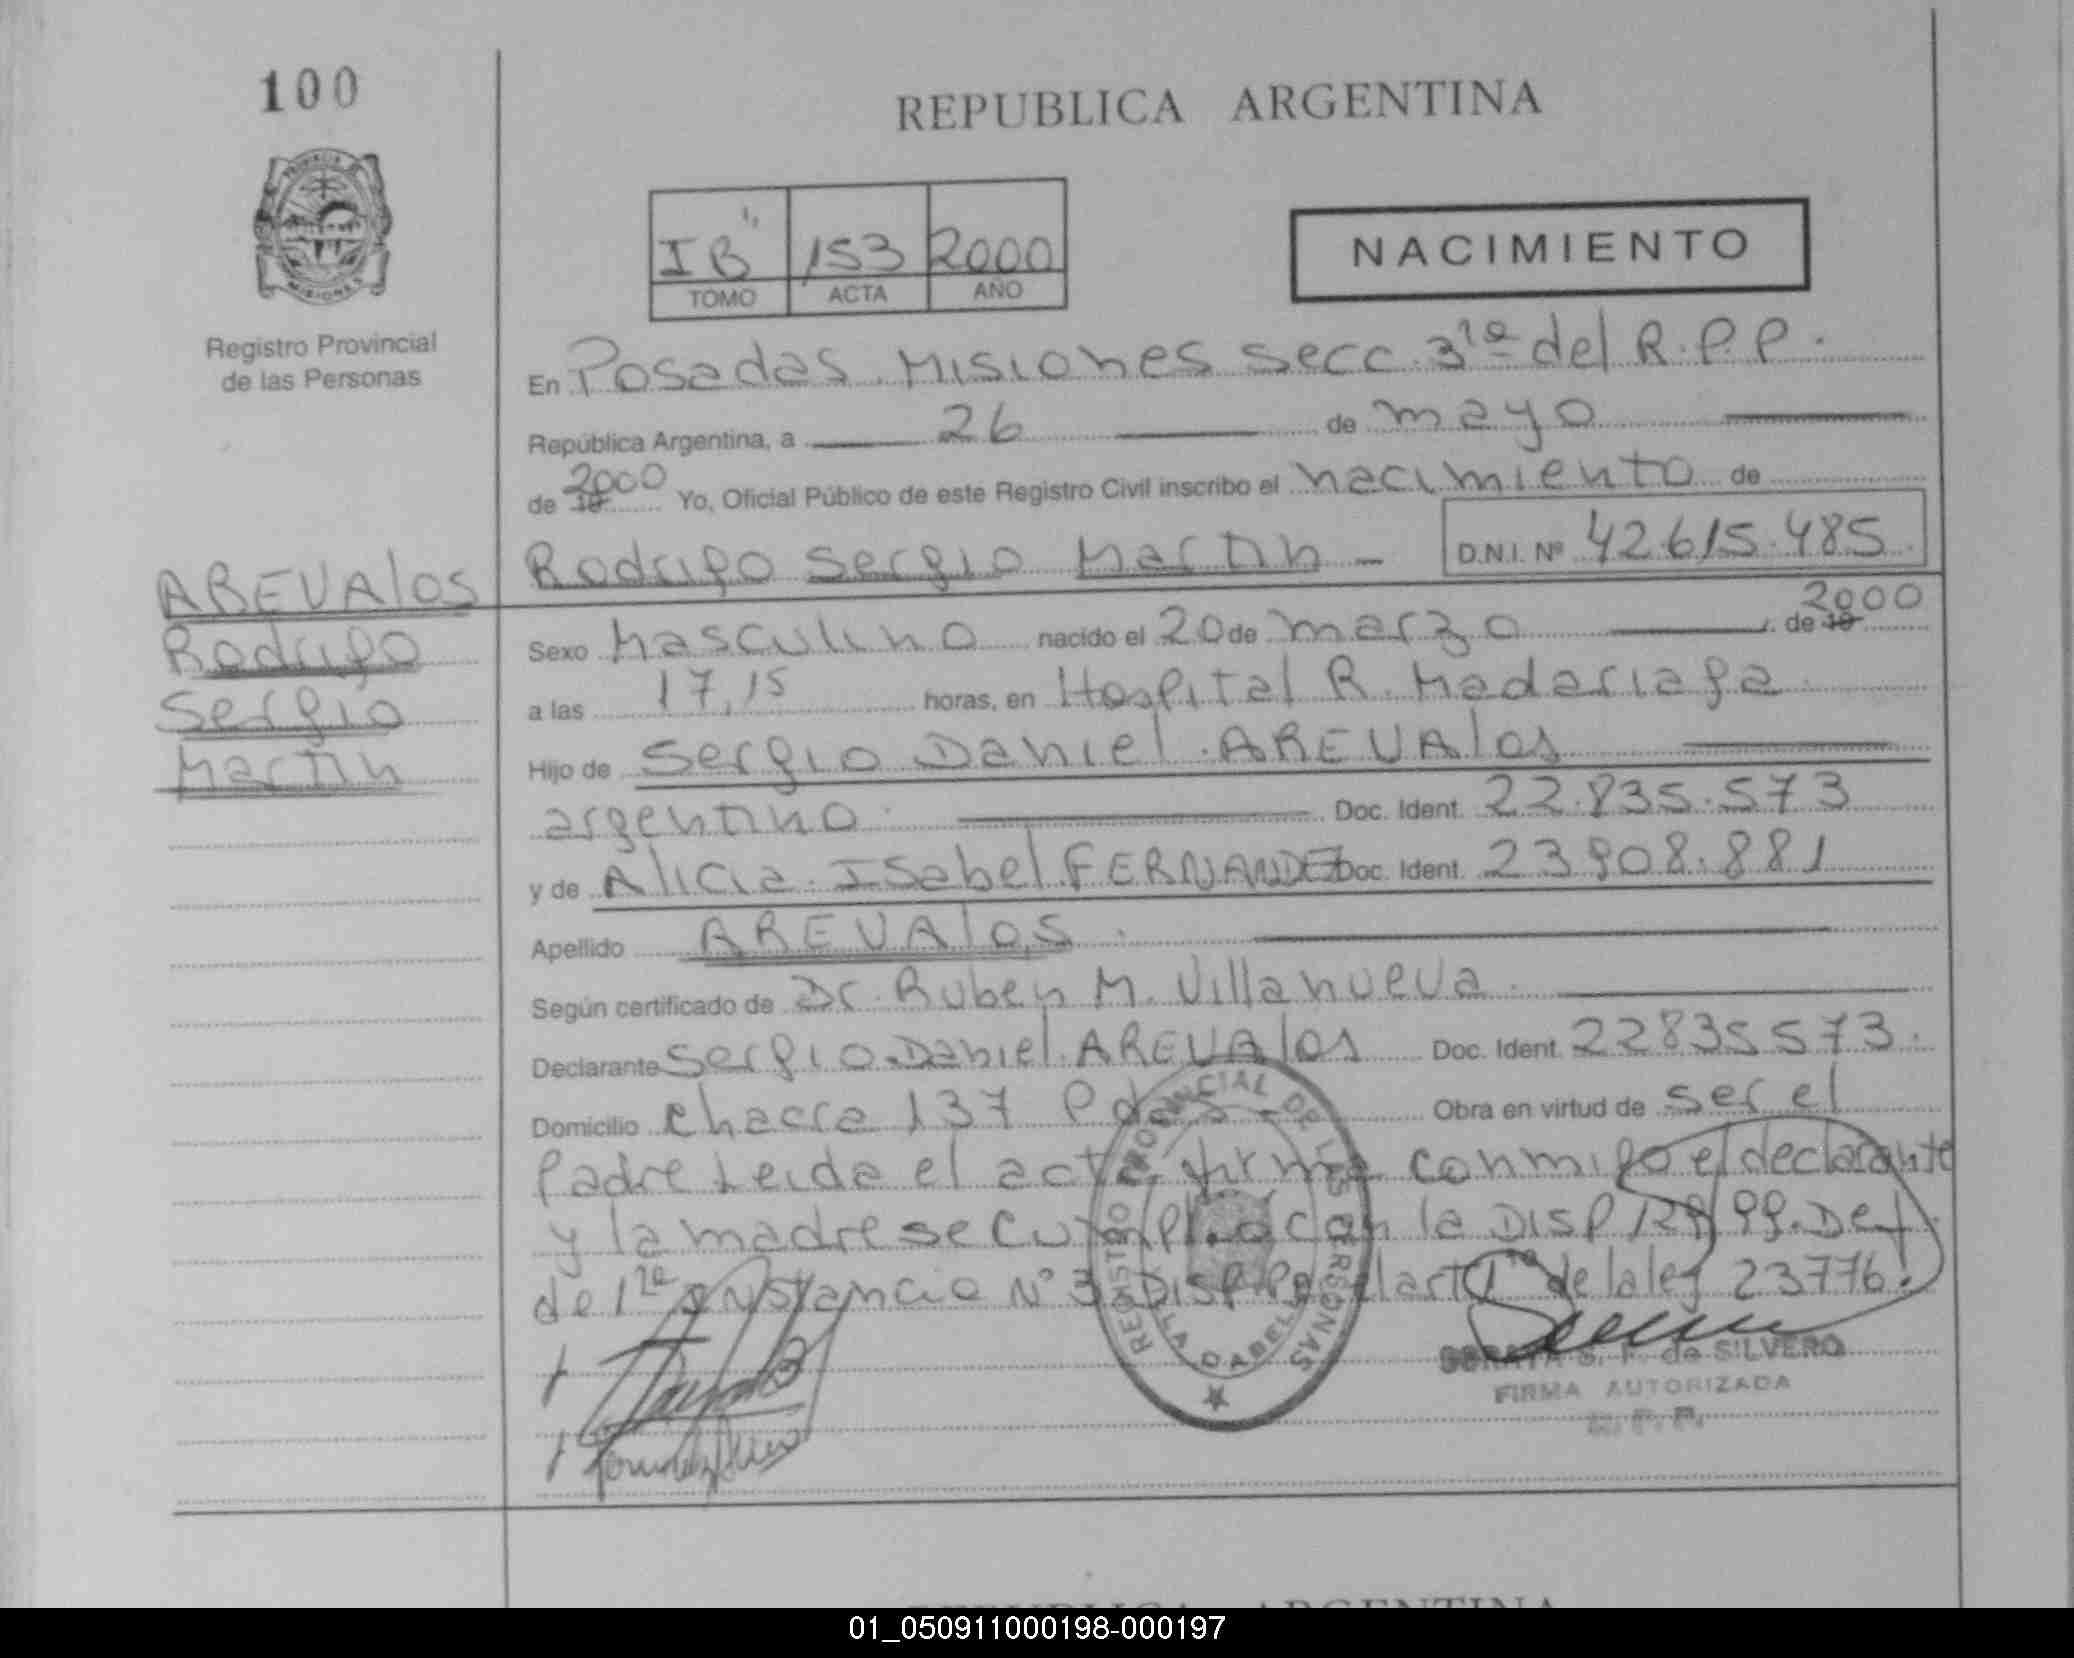 100
REPUBLICA ARGENTINA
PROVINCIA DE
MISIONES
IB" 153 2000
TOMO ACTA AÑO
NACIMIENTO
Registro Provincial
de las Personas
En Posadas Misiones Secc. 3ra del R.P.P.
República Argentina, a 26 de mayo
de 19 2000 Yo, Oficial Público de este Registro Civil inscribo el nacimiento de
Rodrigo Sergio Martin - D.N.I. Nº 42.615.485
AREVAlos
Rodrigo
Sergio
Martin
Sexo Masculino nacido el 20 de marzo de 19 2000
a las 17,15 horas, en Hospital R. Madariaga
Hijo de Sergio Daniel AREVAlos
argentino. Doc. Ident. 22.835.573
y de Alicia Isabel FERNANDEZ Doc. Ident. 23.908.881
Apellido AREVAlos
Según certificado de Dr. Ruben M. Villanueva
Declarante Sergio Daniel AREVAlos Doc. Ident. 22835573.
Domicilio Chacra 137 Pdas - Obra en virtud de ser el
Padre Leida el acta firma conmigo el declarante
y la madre se cumplio con la DISP 99. Def.
de 1ra instancia Nº 3 DISP. Por el art 1º de la ley 23776.
REGISTRO PROVINCIAL DE LAS PERSONAS
S. F. de SILVERO
FIRMA AUTORIZADA
R. P. P.
REPUBLICA ARGENTINA
01_050911000198-000197